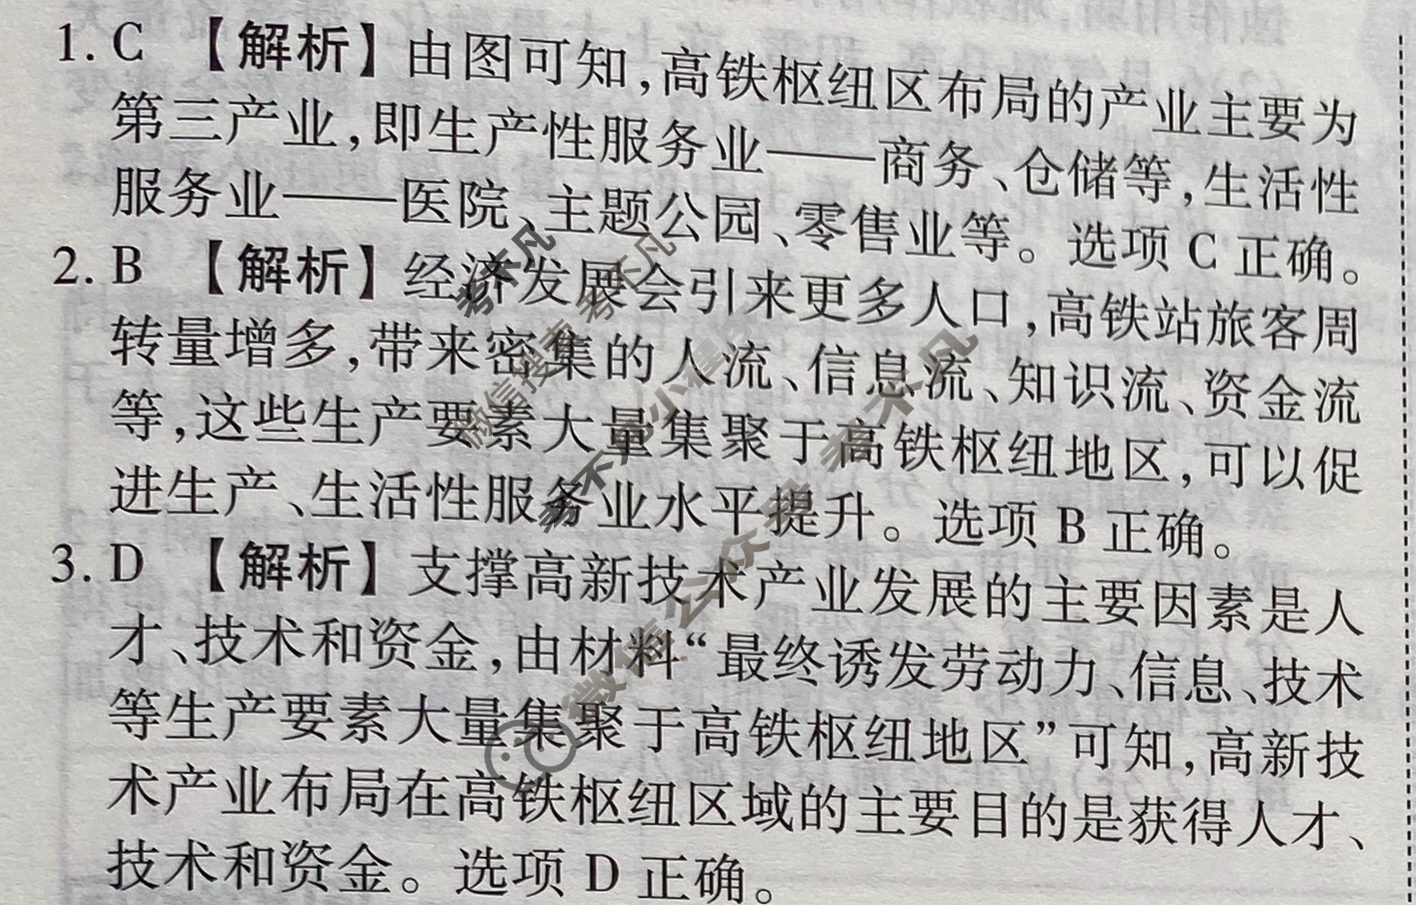 1. C 【解析】由图可知,高铁枢纽区布局的产业主要为
第三产业,即生产性服务业——商务、仓储等,生活性
服务业——医院、主题公园、零售业等。选项 C 正确。
2. B 【解析】经济发展会引来更多人口,高铁站旅客周
转量增多,带来密集的人流、信息流、知识流、资金流
等,这些生产要素大量集聚于高铁枢纽地区,可以促
进生产、生活性服务业水平提升。选项 B 正确。
3. D 【解析】支撑高新技术产业发展的主要因素是人
才、技术和资金,由材料“最终诱发劳动力、信息、技术
等生产要素大量集聚于高铁枢纽地区”可知,高新技
术产业布局在高铁枢纽区域的主要目的是获得人才、
技术和资金。选项 D 正确。